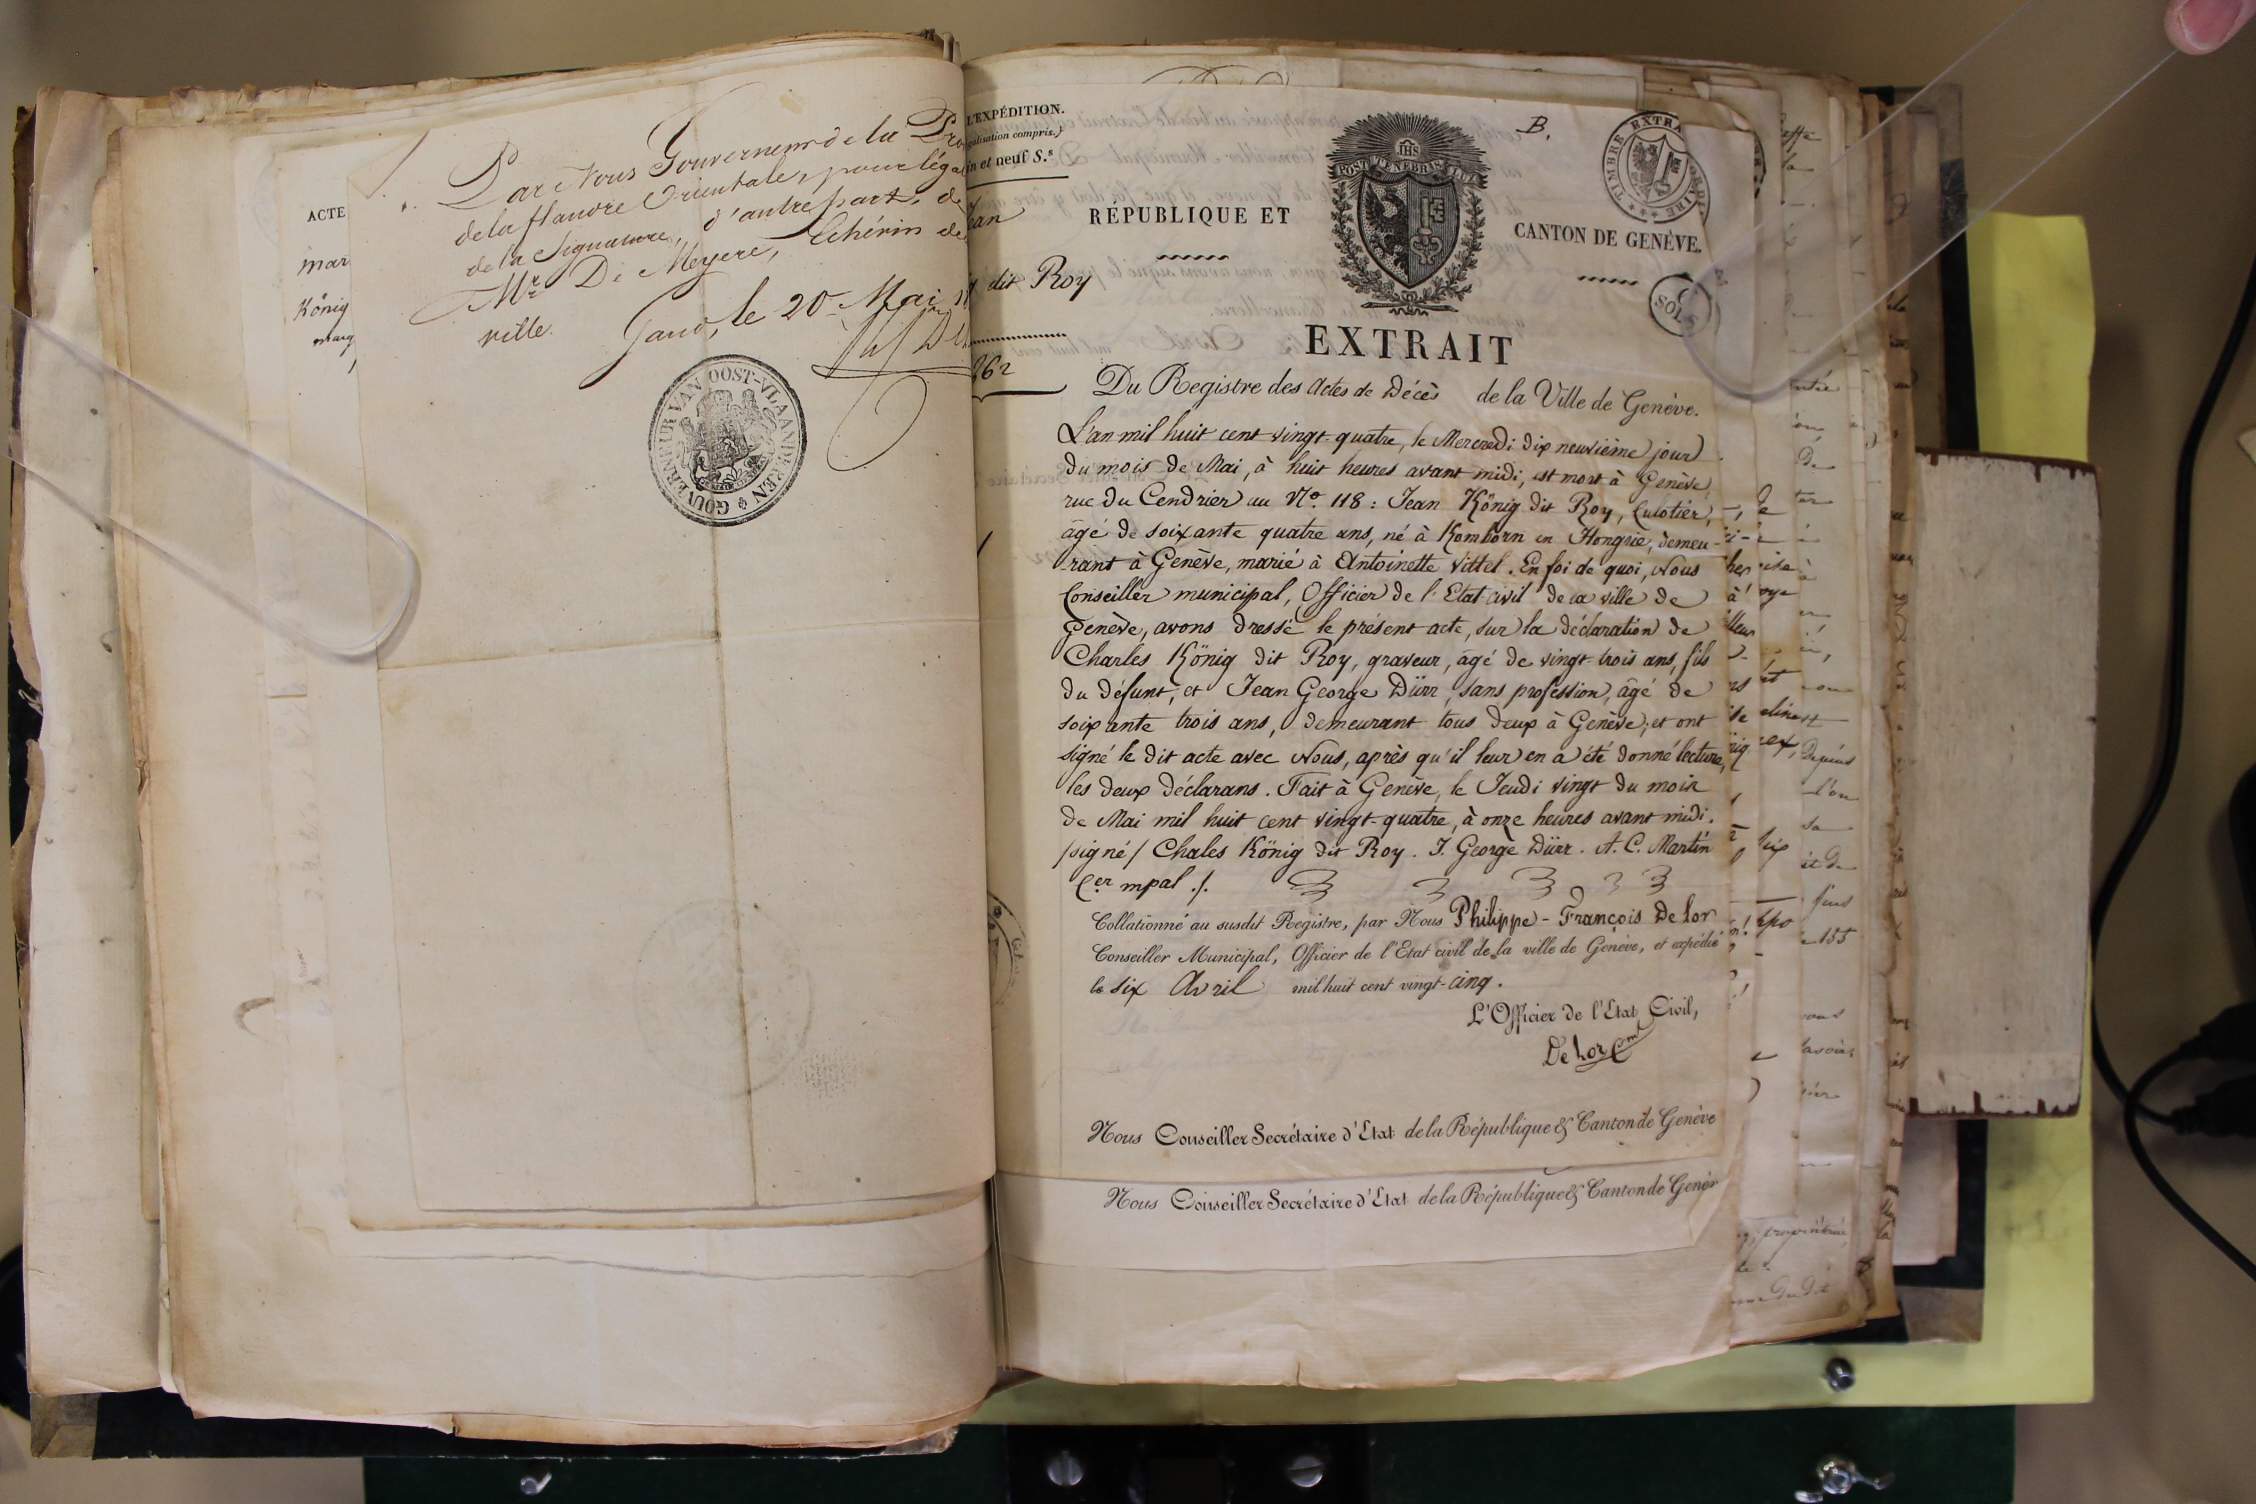 Par Nous Gouverneur de la Pro
de la flandre Orientale, pour légal
de la Signature, d'autre part, de
Mr. De Meyere, Echévin de
ville.
Gand, le 20 Mai
GOUVERNEUR VAN OOST-VLAANDEREN
ACTE
mar
König
L'EXPÉDITION.
alisation compris.)
in et neuf S.s
ean
dit Roy
262
B.
TIMBRE EXTRAORDINAIRE
POST TENEBRAS LUX
IHS
RÉPUBLIQUE ET
CANTON DE GENÈVE.
SOLS
EXTRAIT
Du Registre des Actes de Décès de la Ville de Genève.
L'an mil huit cent vingt-quatre, le Mercredi dix neuvième jour
du mois de Mai, à huit heures avant midi, est mort à Genève,
rue du Cendrier au No. 118 : Jean König dit Roy, Culotier,
âgé de soixante quatre ans, né à Komborn en Hongrie, demeu-
rant à Genève, marié à Antoinette Vittel. En foi de quoi, Nous
Conseiller municipal, Officier de l'Etat civil de la ville de
Genève, avons dressé le présent acte, sur la déclaration de
Charles König dit Roy, graveur, âgé de vingt-trois ans, fils
du défunt, et Jean George Dürr, sans profession, âgé de
soixante trois ans, demeurant tous deux à Genève, et ont
signé le dit acte avec Nous, après qu'il leur en a été donné lecture,
les deux déclarans. Fait à Genève, le Jeudi vingt du mois
de Mai mil huit cent vingt-quatre, à onze heures avant midi.
/signé/ Chales König dit Roy. J. George Dürr. A. C. Martin
Cer mpal ./.
Collationné au susdit Registre, par Nous Philippe-François De lor
Conseiller Municipal, Officier de l'Etat civil de la ville de Genève, et expédié
le six Avril mil huit cent vingt-cinq.
L'Officier de l'Etat Civil,
De lor Cm
Nous Conseiller Secrétaire d'Etat de la République & Canton de Genève
Nous Conseiller Secrétaire d'Etat de la République & Canton de Genèv